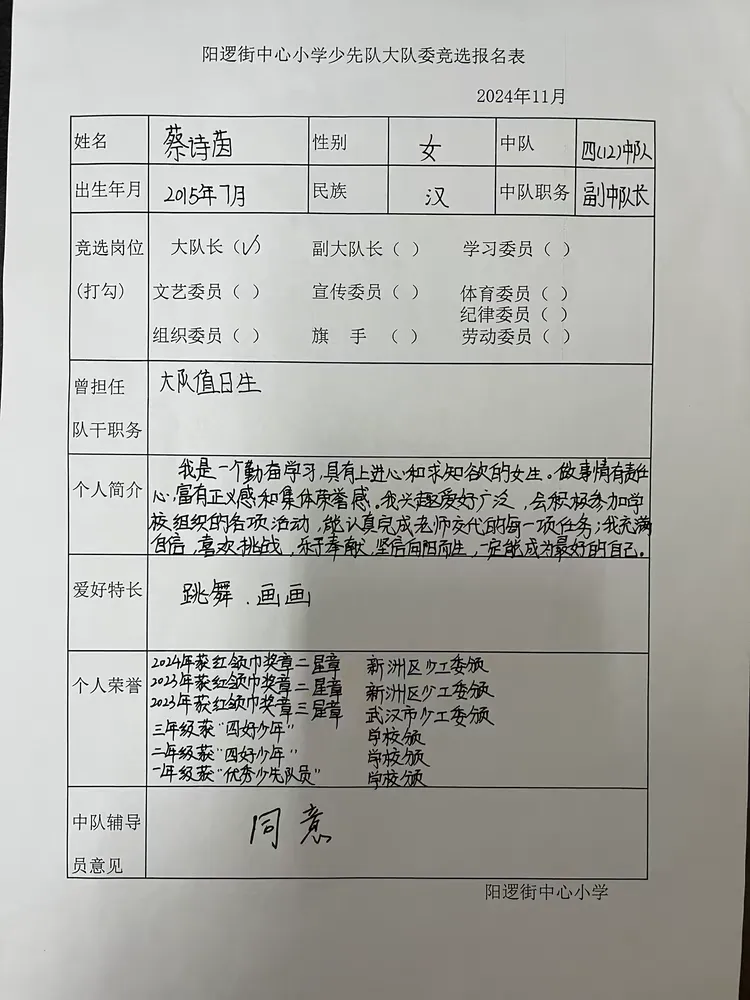 阳逻街中心小学少先队大队委竞选报名表
2024年11月
姓名 蔡诗茵 性别 女 中队 四(12)中队
出生年月 2015年7月 民族 汉 中队职务 副中队长
竞选岗位 大队长（✓） 副大队长（ ） 学习委员（ ）
(打勾) 文艺委员（ ） 宣传委员（ ） 体育委员（ ）
纪律委员（ ）
组织委员（ ） 旗 手 （ ） 劳动委员（ ）
曾担任 大队值日生
队干职务
我是一个勤奋学习,具有上进心和求知欲的女生。做事情有责任
个人简介 心,富有正义感和集体荣誉感。我兴趣爱好广泛，会积极参加学
校组织的各项活动,能认真完成老师交代的每一项任务;我充满
自信,喜欢挑战,乐于奉献,坚信向阳而生,一定能成为最好的自己。
爱好特长 跳舞.画画
2024年获红领巾奖章二星章 新洲区少工委颁
个人荣誉 2023年获红领巾奖章二星章 新洲区少工委颁
2023年获红领巾奖章三星章 武汉市少工委颁
三年级获“四好少年” 学校颁
二年级获“四好少年” 学校颁
一年级获“优秀少先队员” 学校颁
中队辅导 同意
员意见
阳逻街中心小学